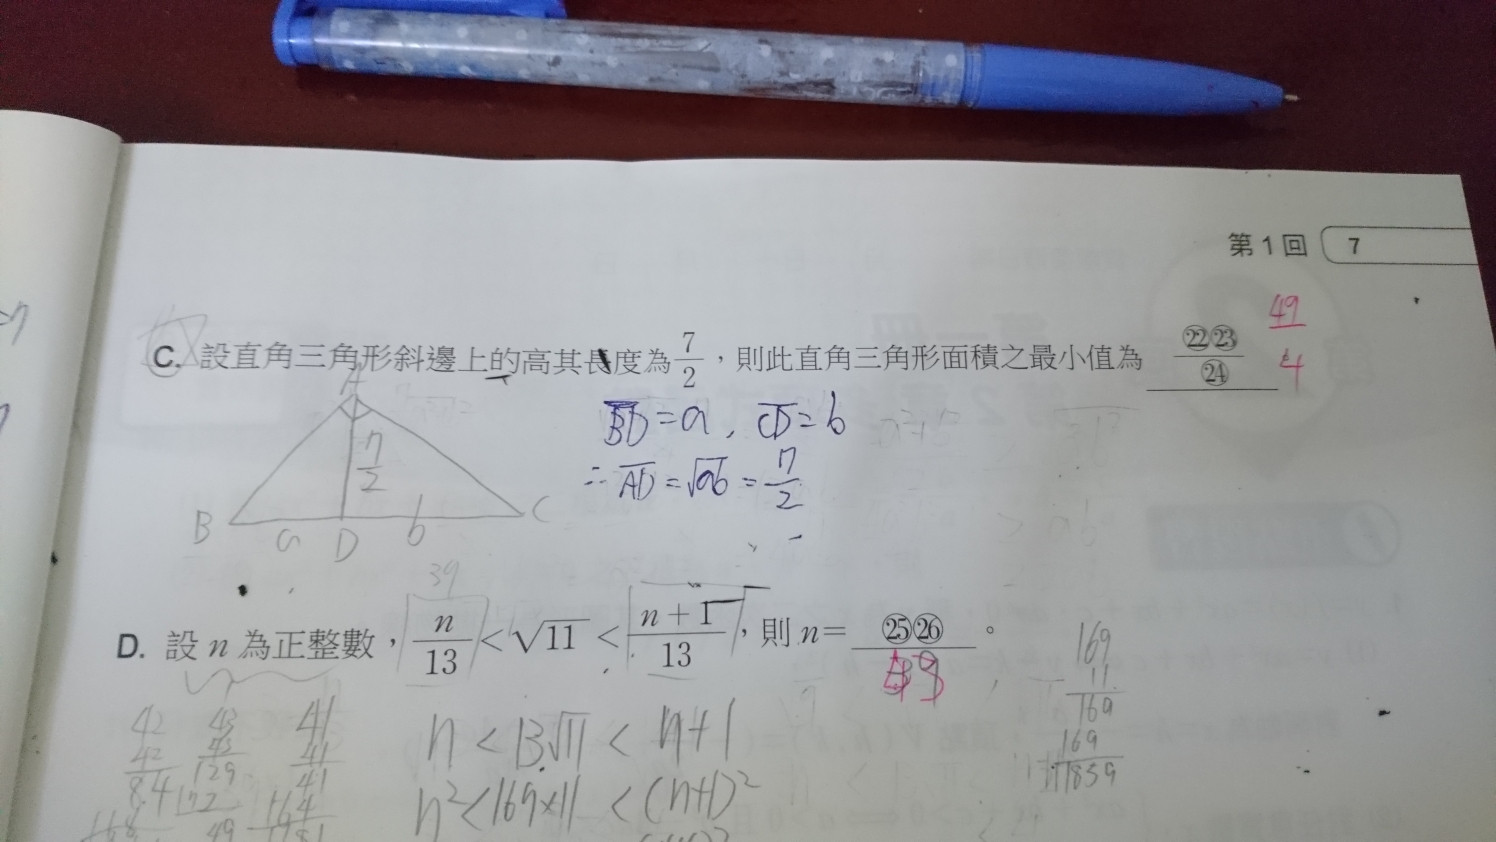 第1回 7
49
C. 設直角三角形斜邊上的高其長度為 7/2，則此直角三角形面積之最小值為 ㉒㉓/㉔
4
A
BD=a, CD=b
7/2
∴ AD=√ab=7/2
B a D b C
39
D. 設 n 為正整數， n/13 < √11 < n+1/13，則 n= ㉕㉖。
169
11
169
169
1859
42 43 41
42 43 41
84 129 41
172 164
n < 13√11 < n+1
n²<169×11 <(n+1)²